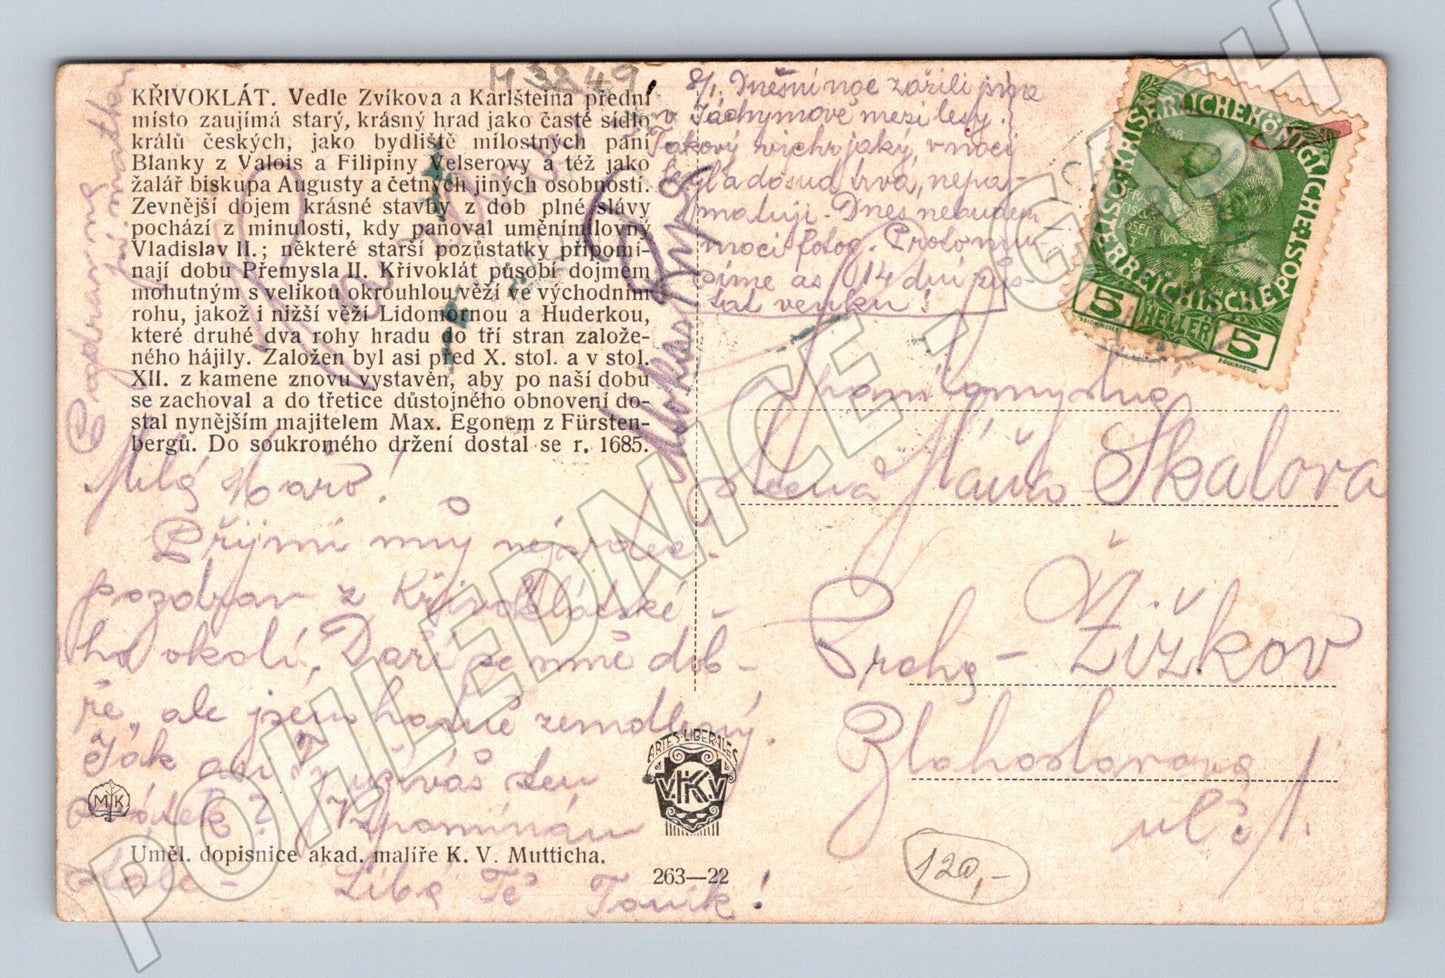 M 3249
KŘIVOKLÁT. Vedle Zvíkova a Karlšteina přední
místo zaujímá starý, krásný hrad jako časté sídlo
králů českých, jako bydliště milostných paní
Blanky z Valois a Filipiny Velserovy a též jako
žalář biskupa Augusty a četných jiných osobností.
Zevnější dojem krásné stavby z dob plné slávy
pochází z minulosti, kdy panoval uměnímilovný
Vladislav II.; některé starší pozůstatky připomí-
nají dobu Přemysla II. Křivoklát působí dojmem
mohutným s velikou okrouhlou věží ve východním
rohu, jakož i nižší věží Lidomornou a Huderkou,
které druhé dva rohy hradu do tří stran založe-
ného hájily. Založen byl asi před X. stol. a v stol.
XII. z kamene znovu vystavěn, aby po naší dobu
se zachoval a do třetice důstojného obnovení do-
stal nynějším majitelem Max. Egonem z Fürsten-
bergů. Do soukromého držení dostal se r. 1685.
Milá Mařo!
Přijmi můj nejsrdeč.
pozdrav z Křivoklátské
ho okolí. Daří se mně dob-
ře, ale jsem
Jak asi užíváš ten
Vzpomínám
Líbá Tě Toník!
Uměl. dopisnice akad. malíře K. V. Mutticha.
263—22
MK
ARTES LIBERALES
V.KK.V
8/1. Dnešní noc zažili jsme
v Jáchymově mezi lesy.
Takový vichr jaký, v noci
byl a dosud trvá, nepa-
matuji. Dnes nebudem
moci fotog. Proto mu-
síme as 14 dní zůs-
tat venku!
KAISERLICHE KÖNIGLICHE
ÖSTERREICHISCHE POST
5 HELLER 5
Slečna Máňa Skalova
Praha - Žižkov
ul.
120,-
POHLEDNICE - GASH